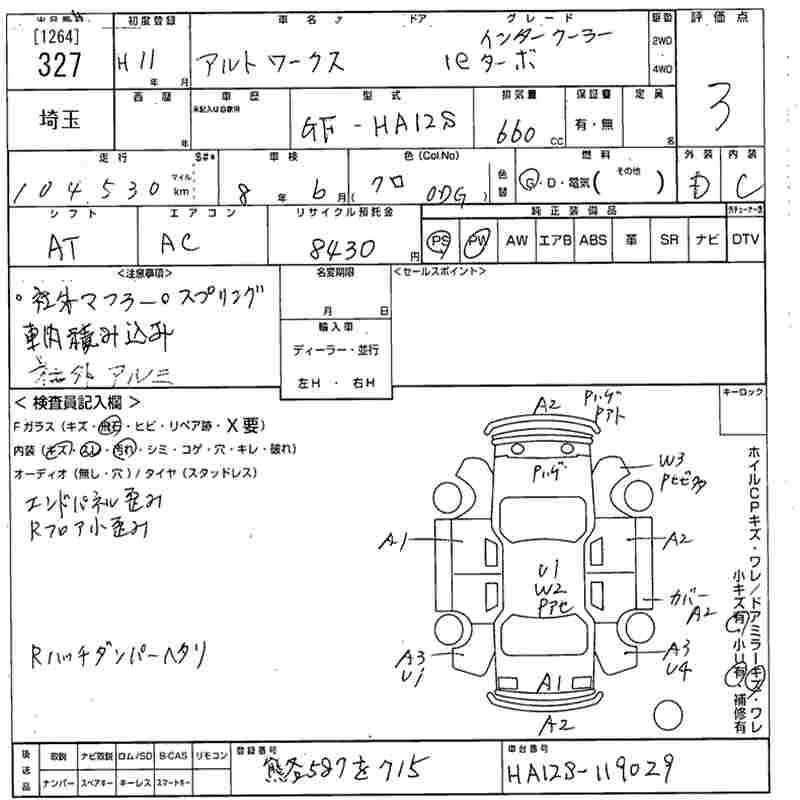 [1264]
327
埼玉
初度登録
H 11
年 月
車名
ドア
グレード
アルトワークス
ieターボ
インタークーラー
駆動
2WD
・
4WD
評価点
3
西暦
年
車歴
未記入は自家用
型式
GF-HA12S
排気量
660 CC
保証書
有・無
定員
名
走行
S#*
104,530
マイル
km
車検
8 年 6 月
色 (Col.No)
クロ
( 0DG )
色替
燃料
G・D・電気 ( その他 )
外装
D
内装
C
シフト
AT
エアコン
AC
リサイクル預託金
8430 円
純正装備品
PS PW AW エアB ABS 革 SR ナビ DTV
<注意事項>
。社外マフラー。スプリング
車内積み込み
社外アルミ
名変期限
月 日
輸入車
ディーラー・並行
左H ・ 右H
<セールスポイント>
<検査員記入欄>
Fガラス (キズ・飛石・ヒビ・リペア跡・X要)
内装 (キズ・スレ・汚れ・シミ・コゲ・穴・キレ・破れ)
オーディオ (無し・穴) / タイヤ (スタッドレス)
エンドパネル歪み
Rフロア小歪み
Rハッチダンパーヘタリ
キーロック
A2
Pハゲ
Pアト
Pハゲ
W3
Pビビ
A1
A2
U1
W2
Pアセ
カバー
A2
A3
U1
A3
U4
A1
A2
ホイルCPキズ・ワレ/ドアミラーキズ・ワレ
小キズ有・小U有・補修有
後送品
取説 ナビ取説 ロム/SD B-CAS リモコン
ナンバー スペアキー キーレス スマートキー
登録番号
熊谷587を715
車台番号
HA12S-119029